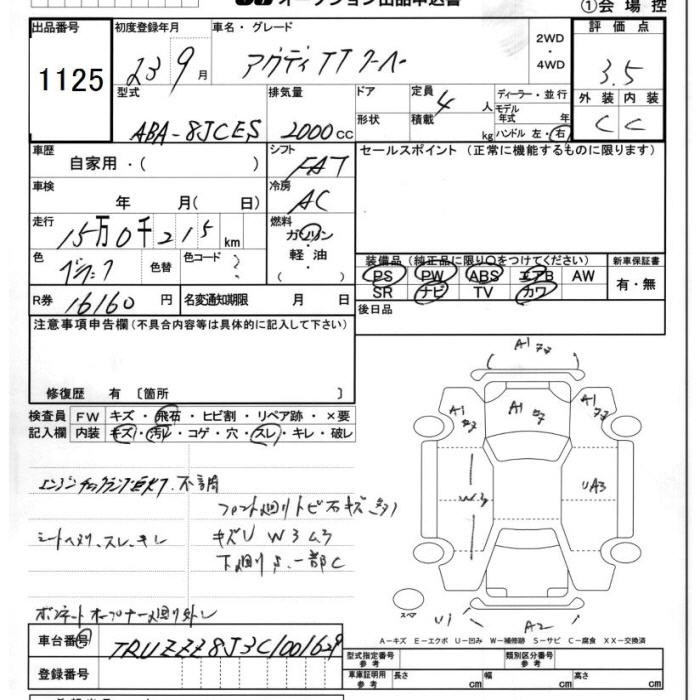 オークション出品申込書
①会場控
出品番号 1125
初度登録年月 23 9月
車名・グレード アウディTTクーペ
2WD・4WD
評価点 3.5
外装 C 内装 C
型式 ABA-8JCES
排気量 2000cc
ドア 形状
定員 4人
積載 kg
ディーラー・並行
モデル年式 年
ハンドル 左・右
車歴 自家用・( )
シフト FAT
セールスポイント(正常に機能するものに限ります)
車検 年 月( 日)
冷房 AC
走行 15万0千215km
燃料 ガソリン・軽油
色 ブラック 色替 色コード ?
装備品(純正品に限り○をつけてください)
新車保証書
PS PW ABS エアB AW
SR ナビ TV カワ
有・無
R券 16160円
名変通知期限 月 日
後日品
注意事項申告欄(不具合内容等は具体的に記入して下さい)
修復歴 有 〔箇所 〕
検査員記入欄
FW キズ・飛石・ヒビ割・リペア跡・×要
内装 キズ・汚れ・コゲ・穴・スレ・キレ・破レ
エンジンチェックランプ点灯.不調
フロント廻りトビ石キズ多
シートヘタリ、スレ、キレ
キズU W3
下廻りS.一部C
ボンネットオープナー廻り外レ
A1
A1
A1
A1
W3
UA3
スペア
U1
A2
A-キズ E-エクボ U-凹み W-補修跡 S-サビ C-腐食 XX-交換済
車台番号 TRUZZZ8J3C1001629
登録番号
型式指定番号 参考
類別区分番号 参考
車庫証明用 参考
長さ cm 幅 cm 高さ cm